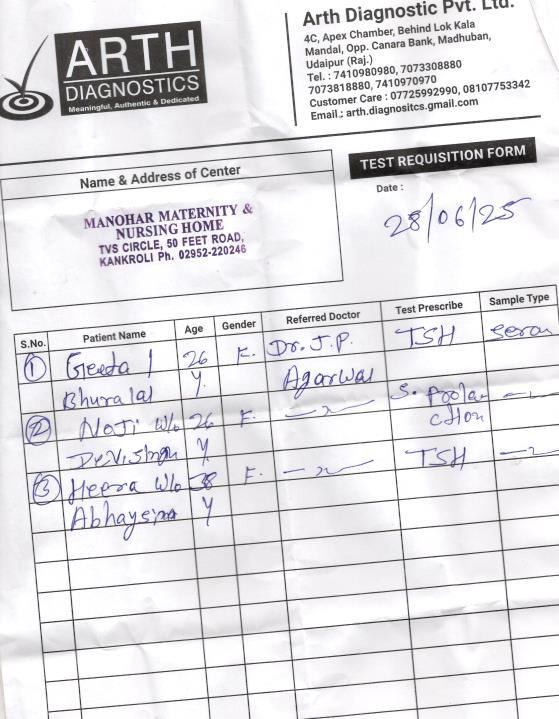 ARTH
DIAGNOSTICS
Meaningful, Authentic & Dedicated
Arth Diagnostic Pvt. Ltd.
4C, Apex Chamber, Behind Lok Kala
Mandal, Opp. Canara Bank, Madhuban,
Udaipur (Raj.)
Tel. : 7410980980, 7073308880
7073818880, 7410970970
Customer Care : 07725992990, 08107753342
Email.: arth.diagnositcs.gmail.com
TEST REQUISITION FORM
Name & Address of Center
Date :
28/06/25
MANOHAR MATERNITY &
NURSING HOME
TVS CIRCLE, 50 FEET ROAD,
KANKROLI Ph. 02952-220246
S.No. Patient Name Age Gender Referred Doctor Test Prescribe Sample Type
1 Geeta 26 F. Dr. J.P. TSH
Bhuralal Y. Agarwal
2 NoJi w/o 26 F. S. Prolac
Devisingh Y ction
3 Heera w/o 38 F. TSH
Y